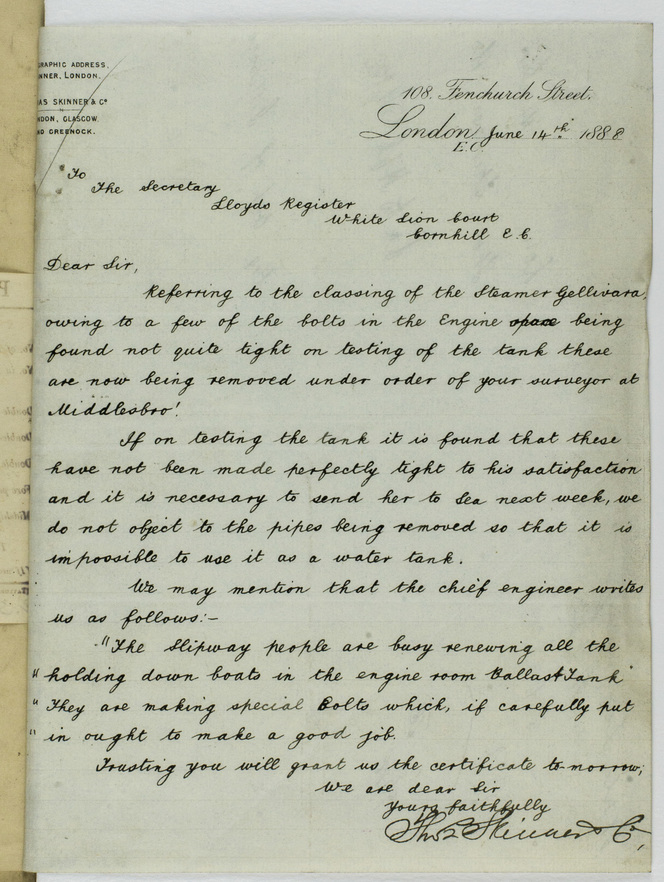 GRAPHIC ADDRESS,
NNER, LONDON.
AS SKINNER & Co
NDON, GLASGOW
ND GREENOCK.
108. Fenchurch Street.
London, June 14th 1888
E.C.
To
The Secretary
Lloyds Register
White Lion Court
Cornhill E.C.
Dear Sir,
Referring to the classing of the Steamer Gellivara,
owing to a few of the bolts in the Engine space being
found not quite tight on testing of the tank these
are now being removed under order of your surveyor at
Middlesbro'.
If on testing the tank it is found that these
have not been made perfectly tight to his satisfaction
and it is necessary to send her to Sea next week, we
do not object to the pipes being removed so that it is
impossible to use it as a water tank.
We may mention that the chief engineer writes
us as follows:-
"The Slipway people are busy renewing all the
" holding down boats in the engine room Ballast Tank
" They are making special Bolts which, if carefully put
" in ought to make a good job.
Trusting you will grant us the certificate to-morrow,
We are dear Sir
Yours faithfully
Thos Skinner & Co,